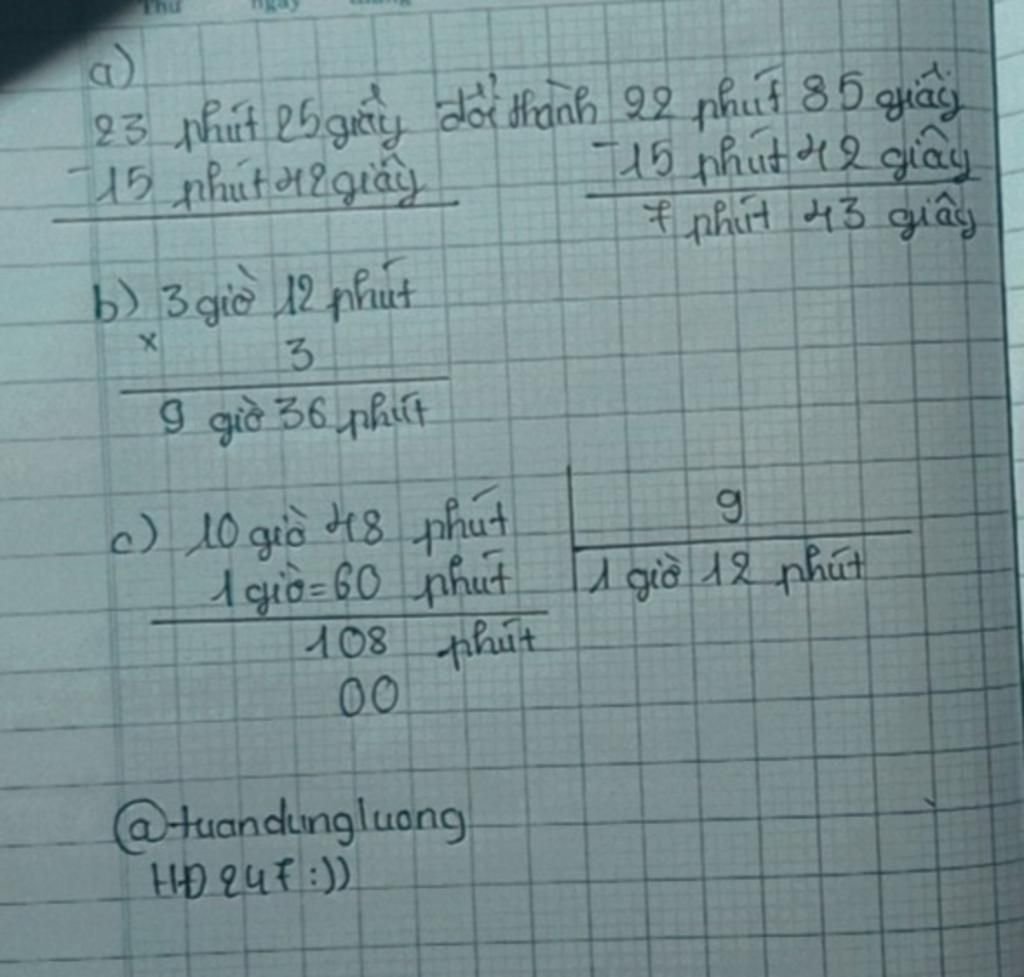 Thứ ngày tháng
a)
23 phút 25 giây đổi thành 22 phút 85 giây
- 15 phút 42 giây - 15 phút 42 giây
7 phút 43 giây
b) 3 giờ 12 phút
x 3
9 giờ 36 phút
c) 10 giờ 48 phút 9
1 giờ = 60 phút 1 giờ 12 phút
108 phút
00
@tuandungluong
HĐ247:))